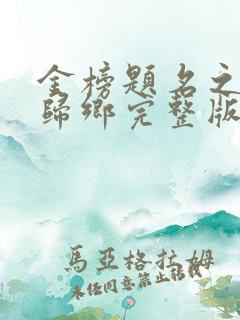 金榜題名之
歸鄉完整版
馬亞格拉姆
未經同意禁止轉載